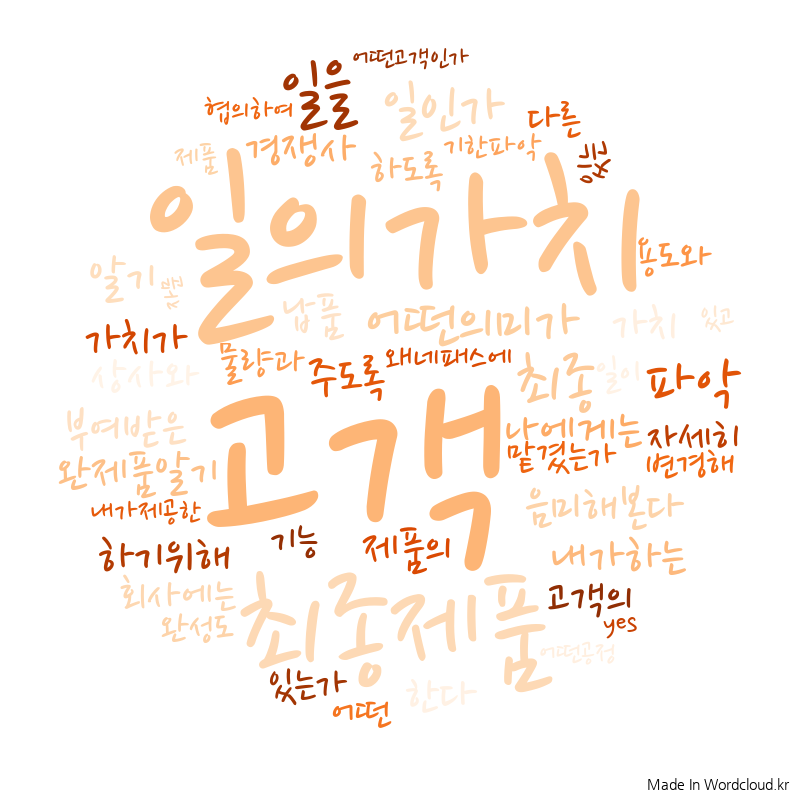 어떤고객인가
일을
협의하여
일인가
다른
제품
경쟁사
하도록
기한파악
있는
일의가치
용도와
알기
납품
어떤의미가
가치
있고
가치가
물량과
주도록
왜네패스에
상사와
최종
일이
파악
부여받은
고객
나에게는
자세히
완제품알기
맡겼는가
변경해
내가제공한
음미해본다
하기위해
기능
제품의
내가하는
회사에는
최종제품
고객의
완성도
yes
어떤공정
있는가
한다
어떤
Made In Wordcloud.kr